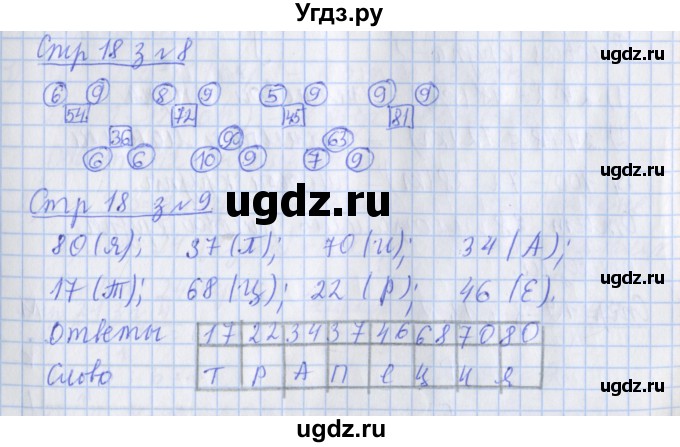 Угдз.ру
Стр 18 з №8
ugdz.ru
ugdz.ru
6 9 8 9 5 9 9 9
54 72 45 81
36 90 63
6 6 10 9 7 9
Стр 18 з №9
ugdz.ru
ugdz.ru
80 (Я); 37 (П); 70 (И); 34 (А);
17 (Т); 68 (Ц); 22 (Р); 46 (Е).
Ответы 17 22 34 37 46 68 70 80
Слово Т Р А П Е Ц И Я
ugdz.ru
ugdz.ru